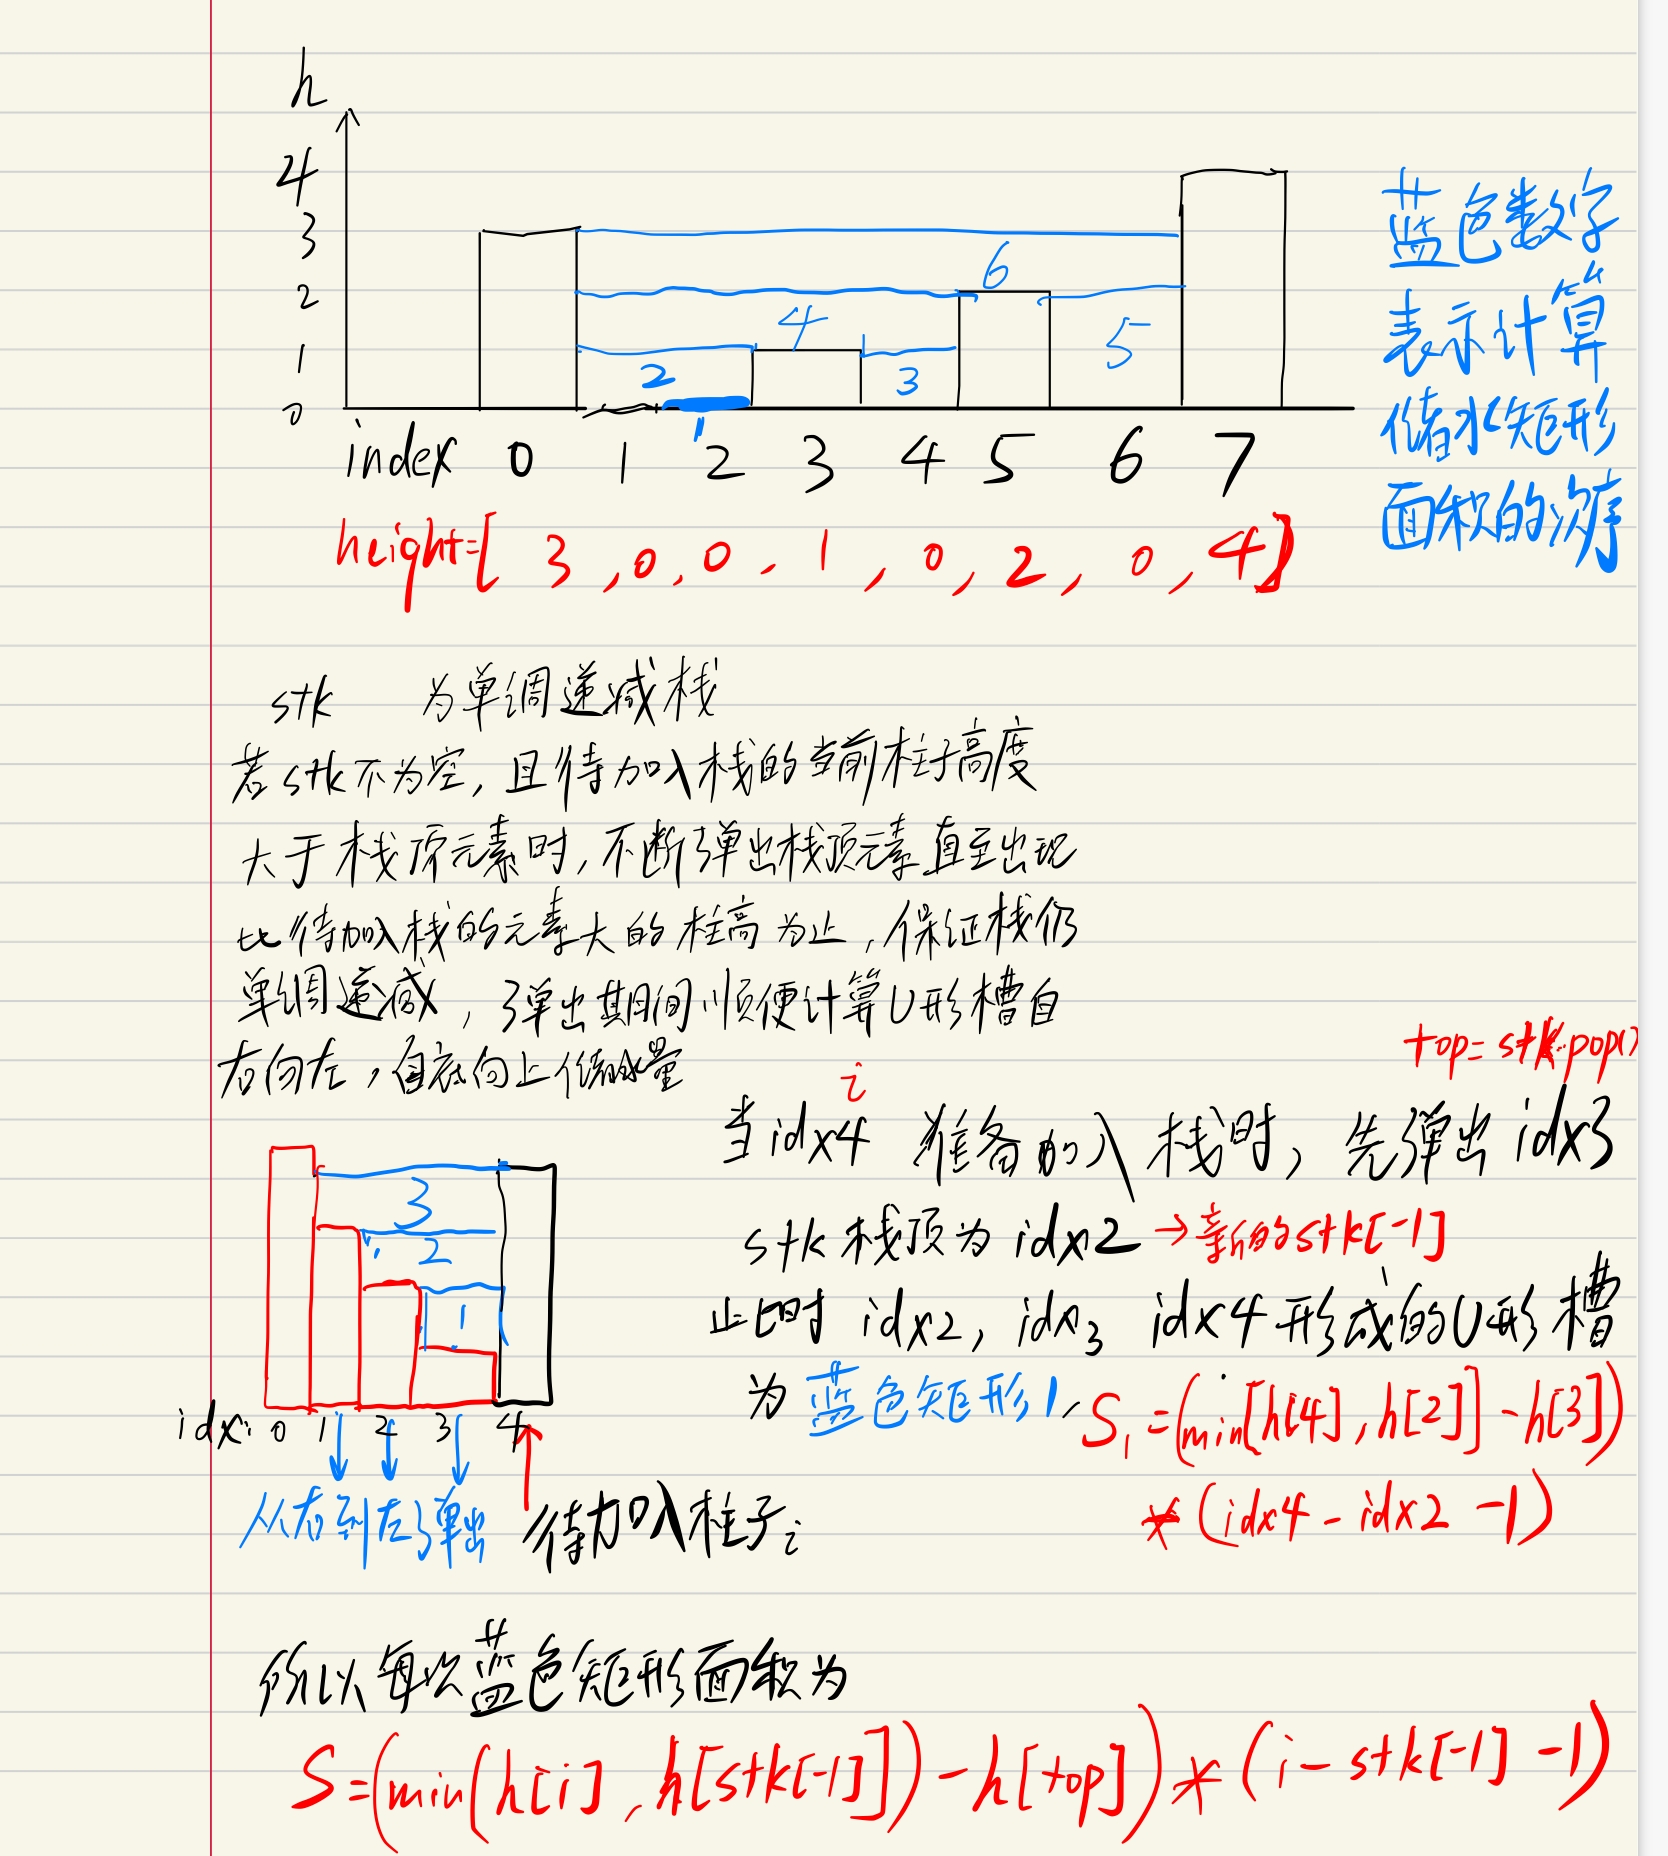 h
4
3
2
1
0
6
4
5
2
3
1
index 0 1 2 3 4 5 6 7
height=[3,0,0,1,0,2,0,4]
蓝色数字
表示计算
储水矩形
面积的次序
stk 为单调递减栈
若stk不为空,且待加入栈的当前柱子高度
大于栈顶元素时,不断弹出栈顶元素直至出现
比待加入栈的元素大的柱高为止,保证栈仍
单调递减,弹出期间顺便计算U形槽自
右向左,自底向上储水量
top=stk.pop()
i
当idx4 准备加入栈时,先弹出idx3
stk栈顶为idx2→新的stk[-1]
此时idx2,idx3 idx4形成的U形槽
为蓝色矩形1,S1=(min[h[4],h[2]]-h[3])
*(idx4-idx2-1)
3
2
1
idx: 0 1 2 3 4
从右到左弹出 待加入柱子i
所以每次蓝色矩形面积为
S=(min(h[i],h[stk[-1]])-h[top])*(i-stk[-1]-1)